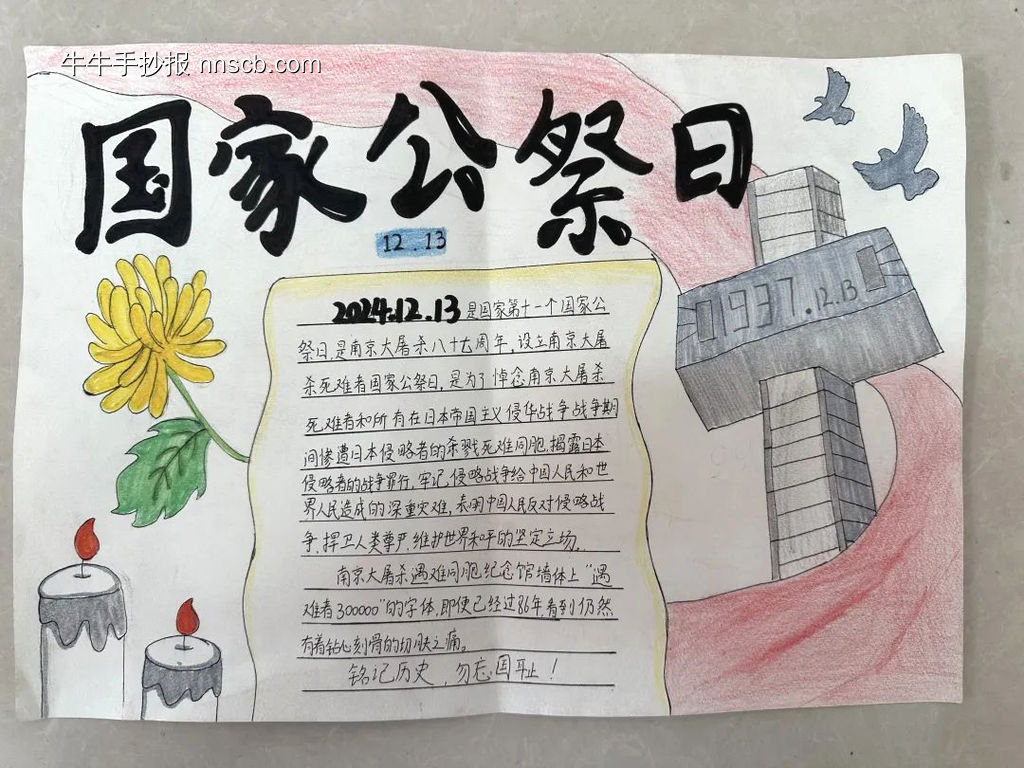 牛牛手抄报 nnscb.com
国家公祭日
12.13
1937.12.13
2024.12.13是国家第十一个国家公
祭日,是南京大屠杀八十七周年,设立南京大屠
杀死难者国家公祭日,是为了悼念南京大屠杀
死难者和所有在日本帝国主义侵华战争战争期
间惨遭日本侵略者的杀戮死难同胞,揭露日本
侵略者的战争罪行,牢记侵略战争给中国人民和世
界人民造成的深重灾难,表明中国人民反对侵略战
争,捍卫人类尊严,维护世界和平的坚定立场.
南京大屠杀遇难同胞纪念馆墙体上“遇
难者300000”的字体,即便已经过86年看到仍然
有着钻心刻骨的切肤之痛。
铭记历史,勿忘国耻!